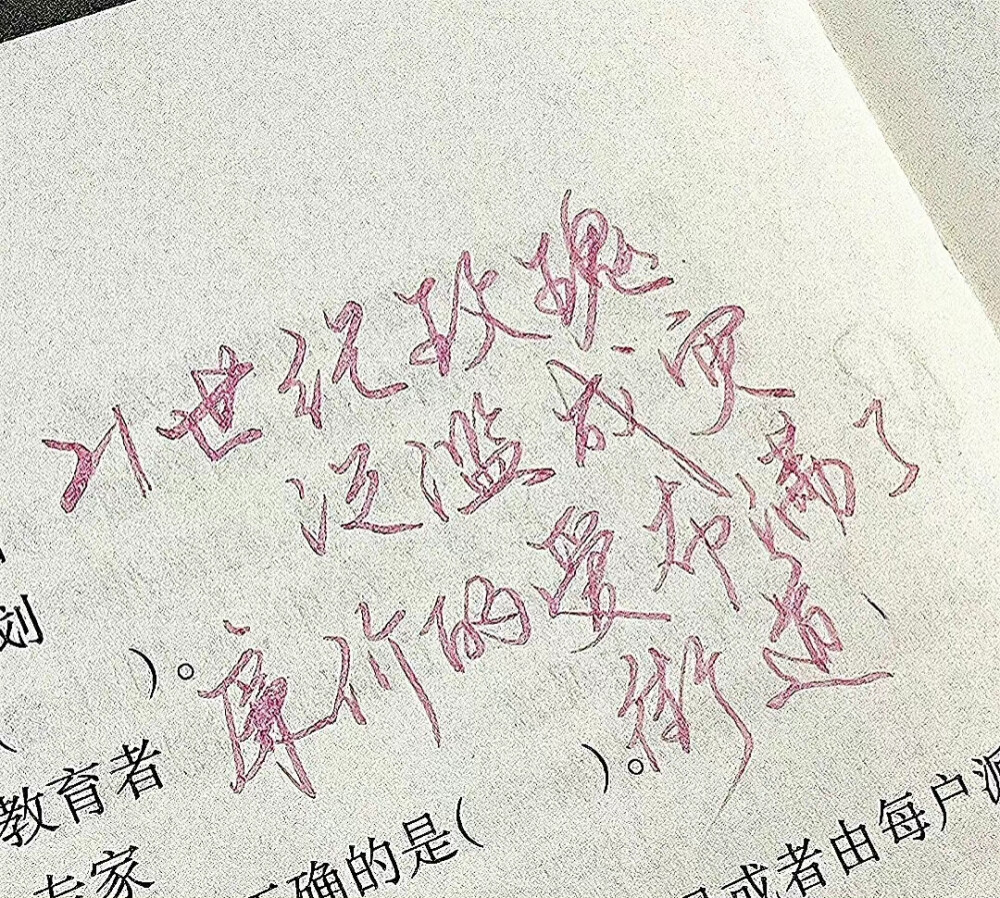 21世纪玫瑰
泛滥成更
廉价的爱布满了
街道
划
)。
教育者
)。
专家
确的是(
或者由每户派